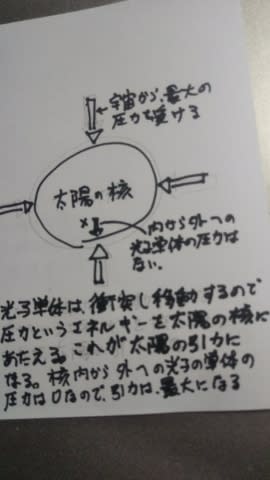 宇宙から、最大の
圧力を受ける
太陽の核
x
内から外への
光子単体の圧力は
ない。
光子単体は、衝突し移動するので
圧力というエネルギーを太陽の核に
あたえる。これが太陽の引力に
なる。核内から外への光子の単体の
圧力は0なので、引力は、最大になる